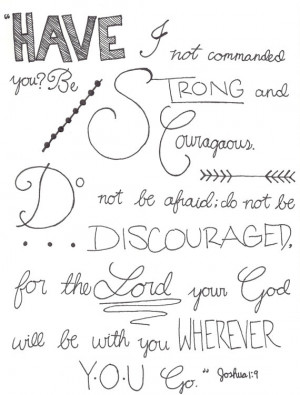 "HAVE I not commanded
you? Be STRONG and
Couragaous.
Do not be afraid; do not be
DISCOURAGED,
for the Lord your God
will be with you WHEREVER
Y·O·U Go." Joshua 1:9